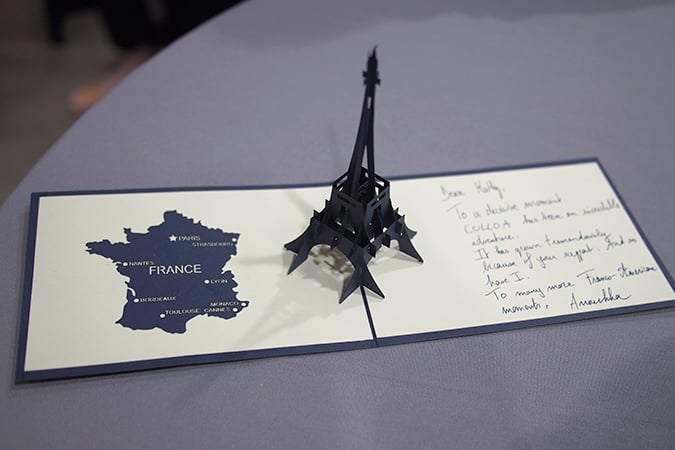 PARIS
STRASBOURG
NANTES
FRANCE
LYON
BORDEAUX
MONACO
TOULOUSE CANNES
Dear Kelly,
To a decisive moment
COLCOA has been an incredible
adventure.
It has grown tremendously
because of your support. And so
have I.
To many more Franco-American
moments, Anouchka